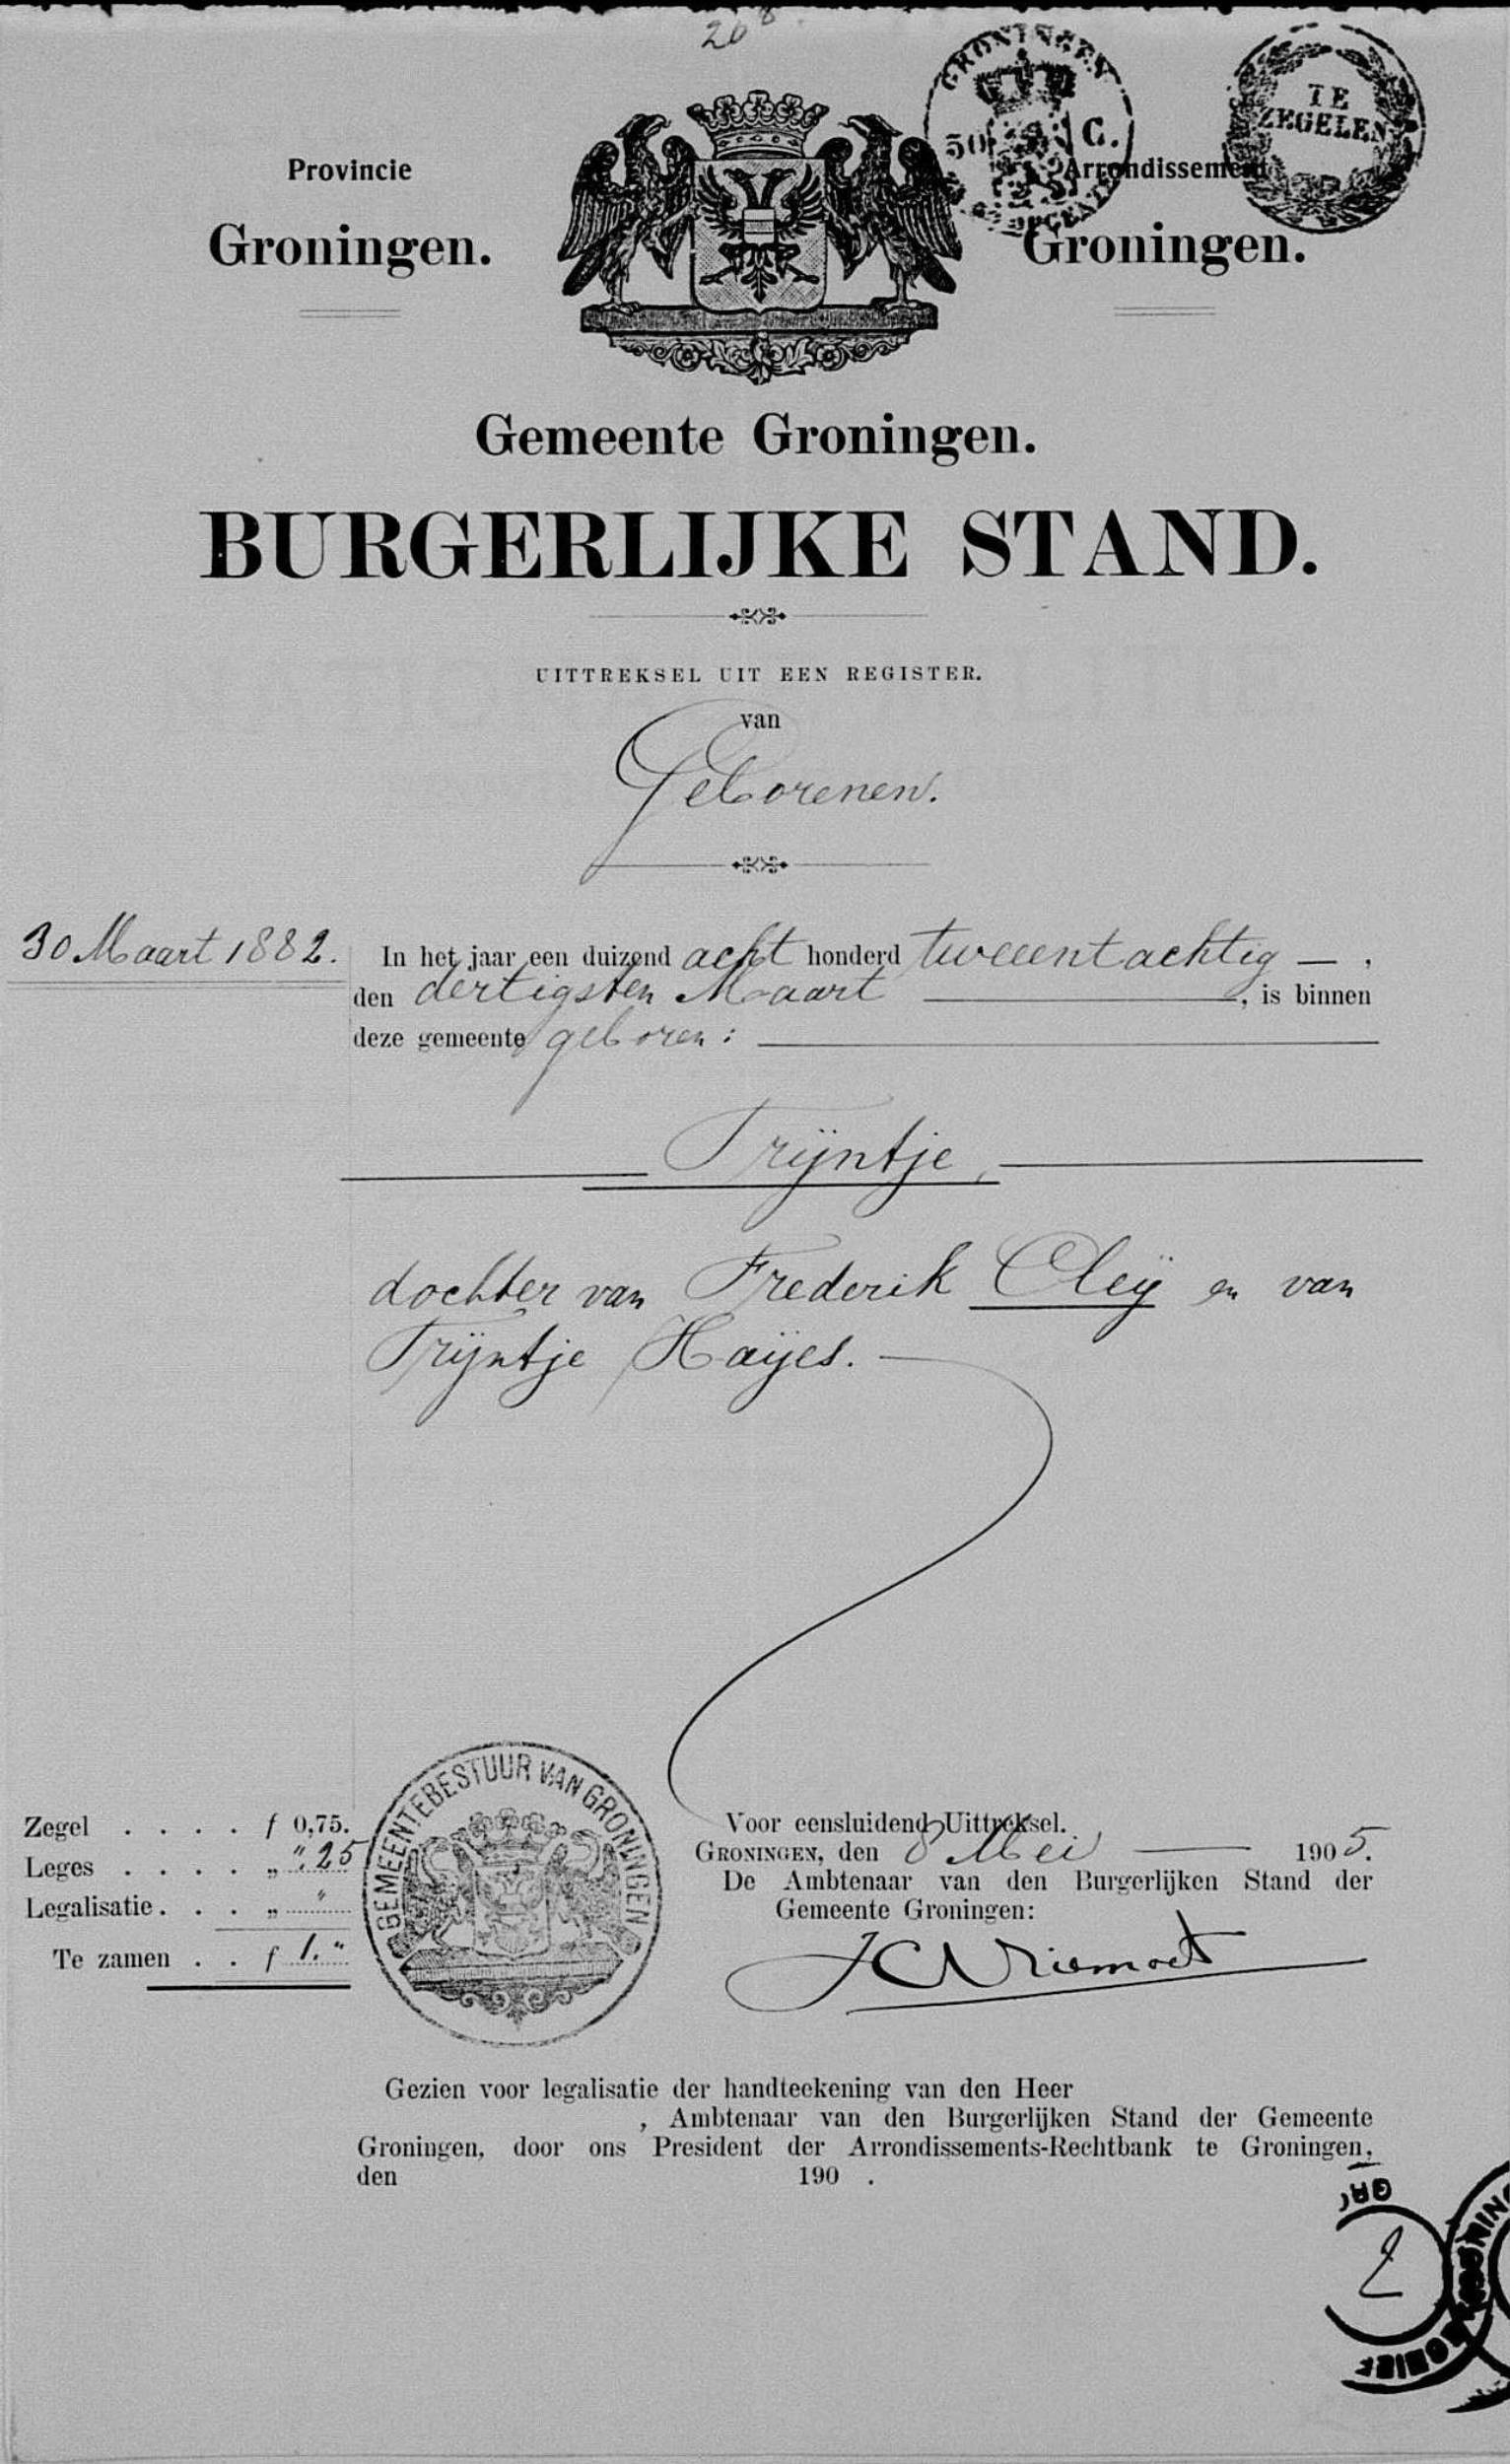 26 8
GRONINGEN
50 C.
TE
ZEGELEN
Provincie
Arrondissement
Groningen.
Groningen.
Gemeente Groningen.
BURGERLIJKE STAND.
UITTREKSEL UIT EEN REGISTER.
van
Geborenen.
30 Maart 1882.
In het jaar een duizend acht honderd tweeentachtig — ,
den dertigsten Maart ——— , is binnen
deze gemeente geboren : ———
Trijntje,
dochter van Frederik Cleij en van
Trijntje Haijes. —
GEMEENTEBESTUUR VAN GRONINGEN
Zegel . . . . f 0,75.
Leges . . . . „ ".25
Legalisatie . . . „ "
Te zamen . . f 1."
Voor eensluidend Uittreksel.
GRONINGEN, den 8 Mei — 1905.
De Ambtenaar van den Burgerlijken Stand der
Gemeente Groningen:
Gezien voor legalisatie der handteekening van den Heer
, Ambtenaar van den Burgerlijken Stand der Gemeente
Groningen, door ons President der Arrondissements-Rechtbank te Groningen,
den 190 .
2